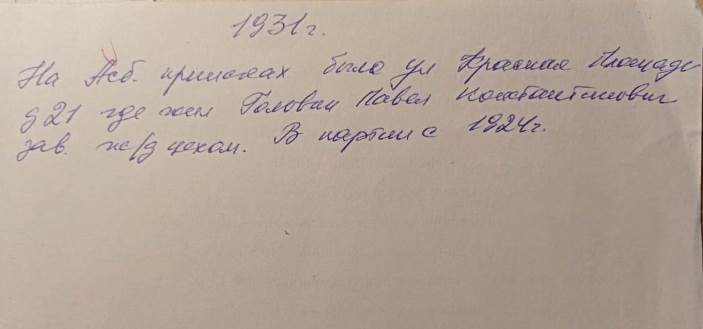 1931г.
На Асб. приисках было ул Красная Площадь
д 21 где жил Головин Павел Константинович
зав. ж/д цехом. В партии с 1924г.